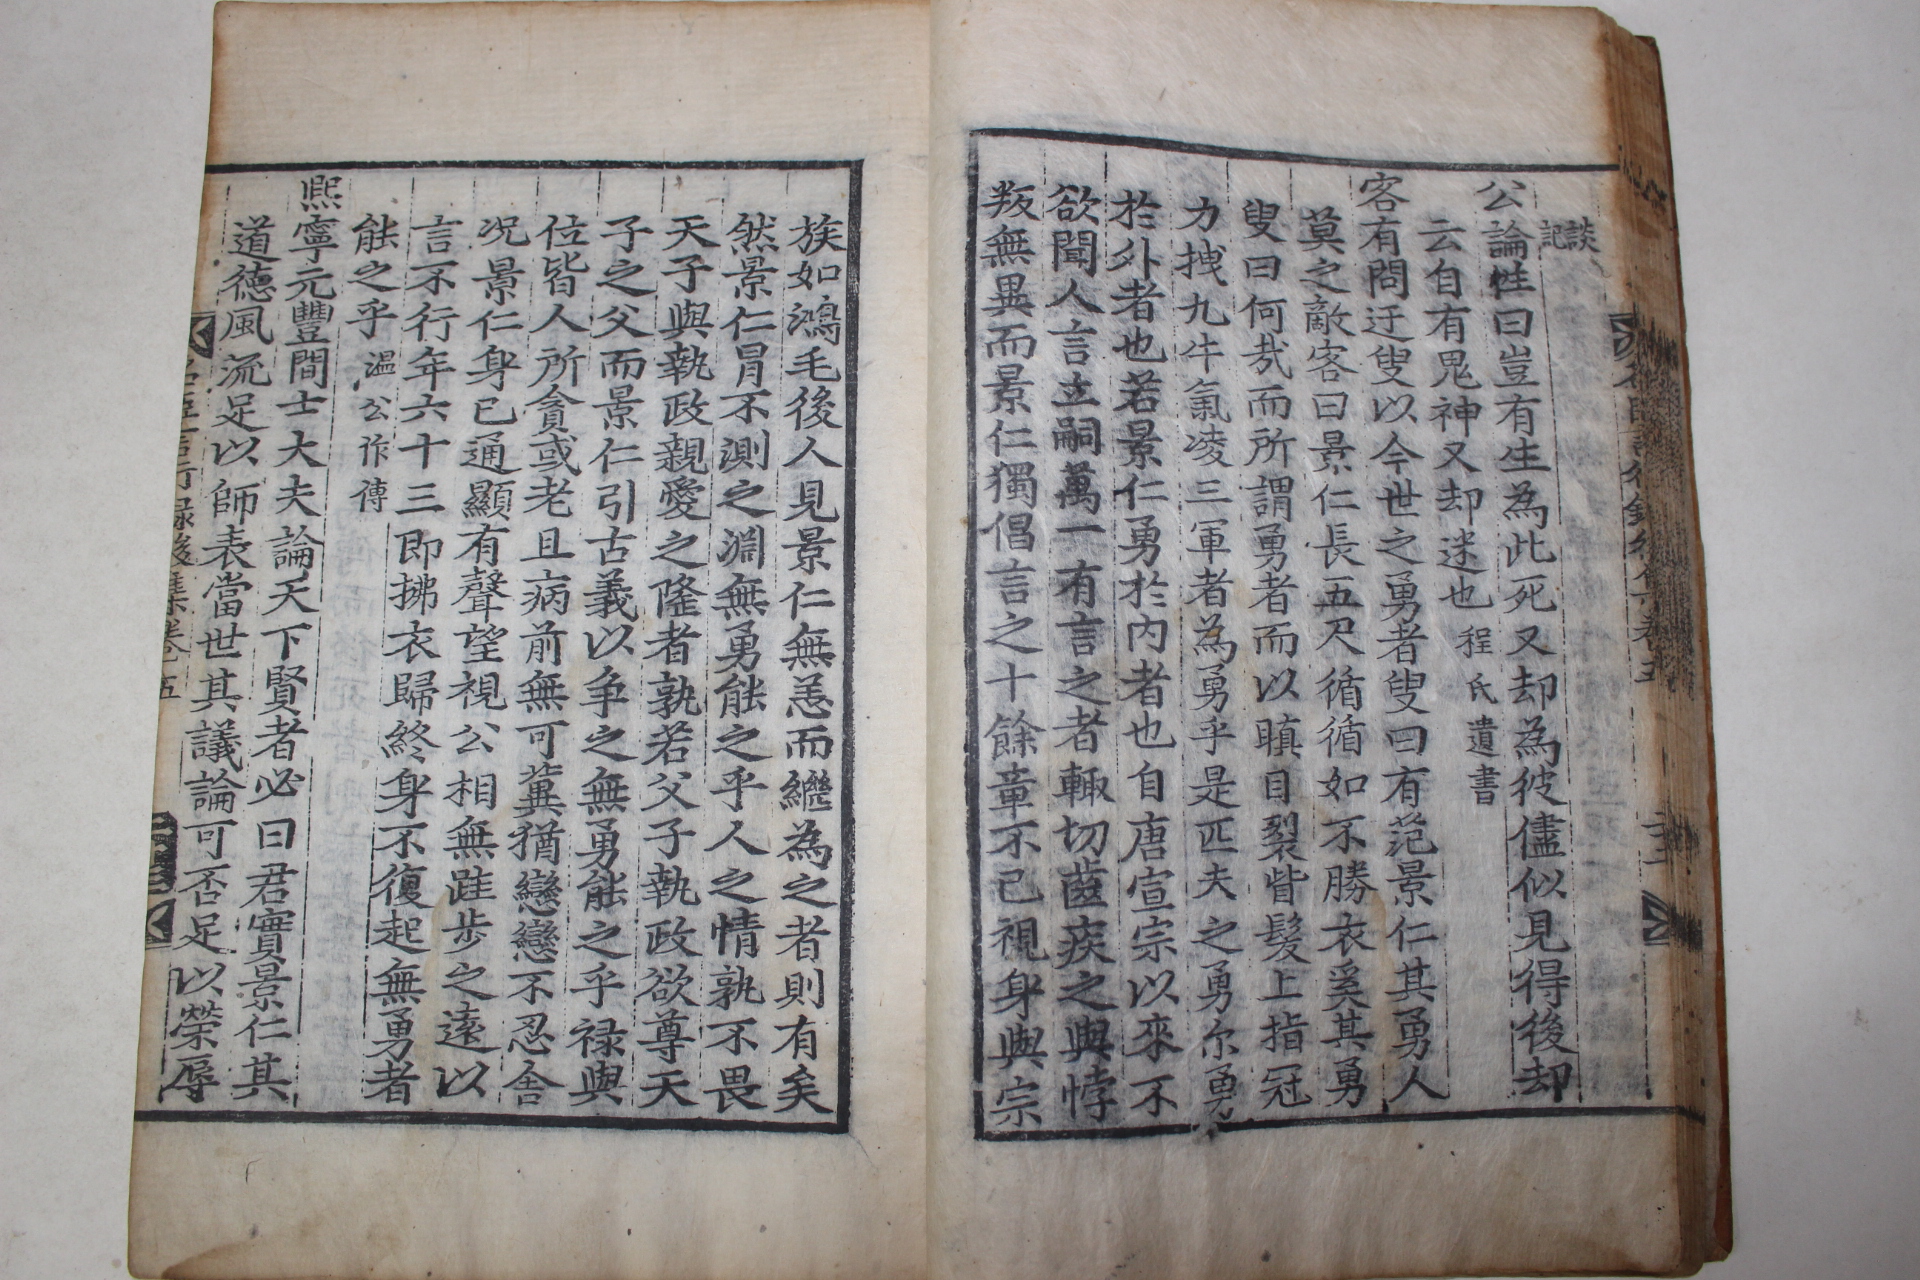 談
記
公論性曰豈有生為此死又却為彼儘似見得後却
云自有鬼神又却迷也程氏遺書
客有問迂叟以今世之勇者叟曰有范景仁其勇人
莫之敵客曰景仁長五尺循循如不勝衣奚其勇
叟曰何㢤而所謂勇者而以瞋目裂眥髮上指冠
力拽九牛氣凌三軍者為勇乎是匹夫之勇尓勇
於外者也若景仁勇於內者也自唐宣宗以來不
欲聞人言立嗣萬一有言之者輙切齒疾之與悖
叛無異而景仁獨倡言之十餘章不已視身與宗
族如鴻毛後人見景仁無恙而繼為之者則有矣
然景仁冒不測之淵無勇能之乎人之情孰不畏
天子與執政親愛之隆者孰若父子執政欲尊天
子之父而景仁引古義以爭之無勇能之乎祿與
位皆人所貪或老且病前無可冀猶戀戀不忍舍
况景仁身已通顯有聲望視公相無跬步之遠以
言不行年六十三即拂衣歸終身不復起無勇者
能之乎溫公作傳
熙寧元豐間士大夫論天下賢者必曰君實景仁其
道德風流足以師表當世其議論可否足以榮辱
名臣言行録後集卷五